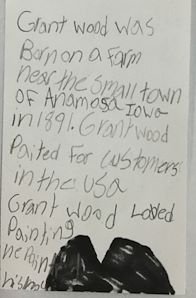 Grant wood was
Born on a Farm
near the small town
OF Anamosa Iowa
in 1891. Grantwood
Paited For customers
in the usa
Grant wood Loved
Painting
he Pain